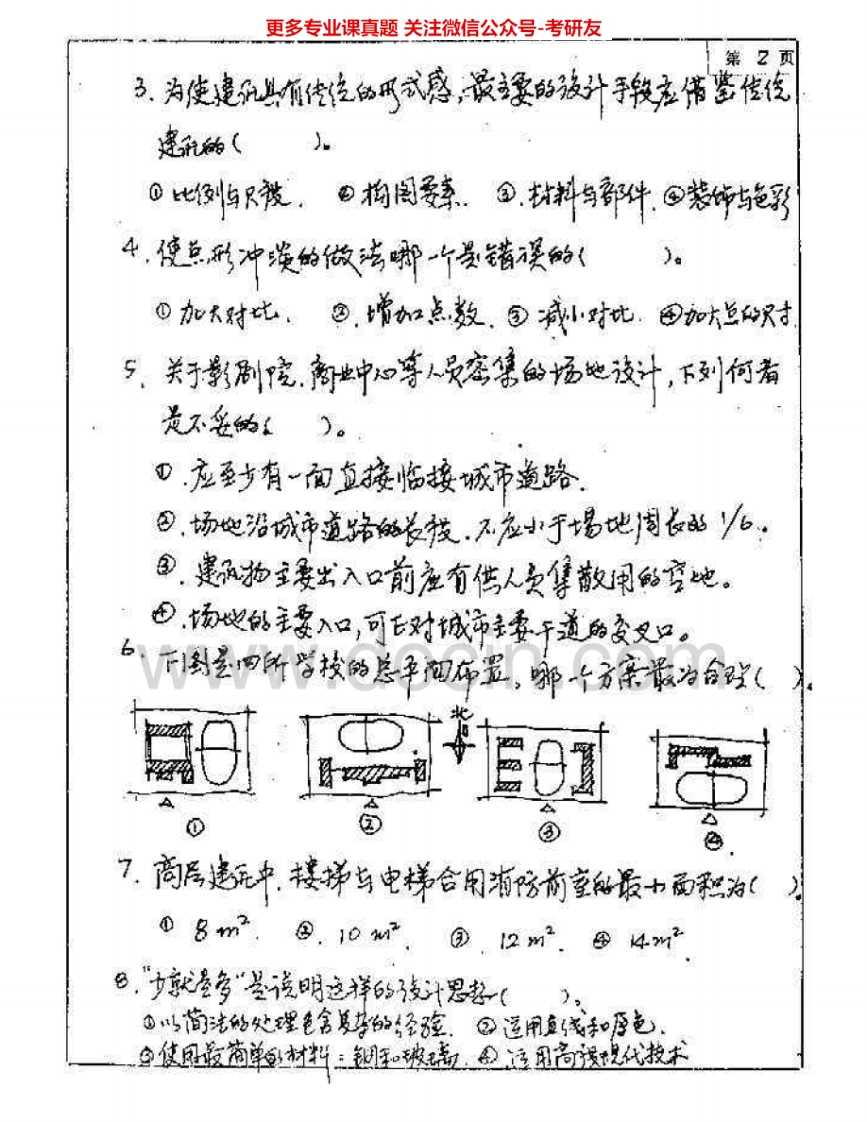 更多专业课真题 关注微信公众号-考研友
第 2 页
3. 为使建筑具有传统的形式感,最主要的设计手段应借鉴传统
建筑的( )。
① 比例与尺度. ② 构图要素. ③. 材料与部件. ④装饰与色彩
4. 使点形冲淡的做法哪一个是错误的( )。
① 加大对比. ②. 增加点数. ③ 减小对比. ④加大点的尺寸.
5. 关于影剧院.商业中心等人员密集的场地设计,下列何者
是不妥的( )。
①. 应至少有一面直接临接城市道路.
②. 场地沿城市道路的长度.不应小于场地周长的1/6.
③. 建筑物主要出入口前应有供人员集散用的空地。
④. 场地的主要入口,可正对城市主要干道的交叉口。
www.docin.com
6. 下图是四所学校的总平面布置。哪一个方案最为合理( )。
北
① ② ③ ④
7. 高层建筑中.楼梯与电梯合用消防前室的最小面积为( )。
① 8m². ②. 10m². ③. 12m². ④ 14m².
8. “少就是多”是说明这样的设计思想( )。
①以简洁的处理包含复杂的经验. ②运用直线和原色.
③使用最简单的材料:钢和玻璃. ④运用高度现代技术